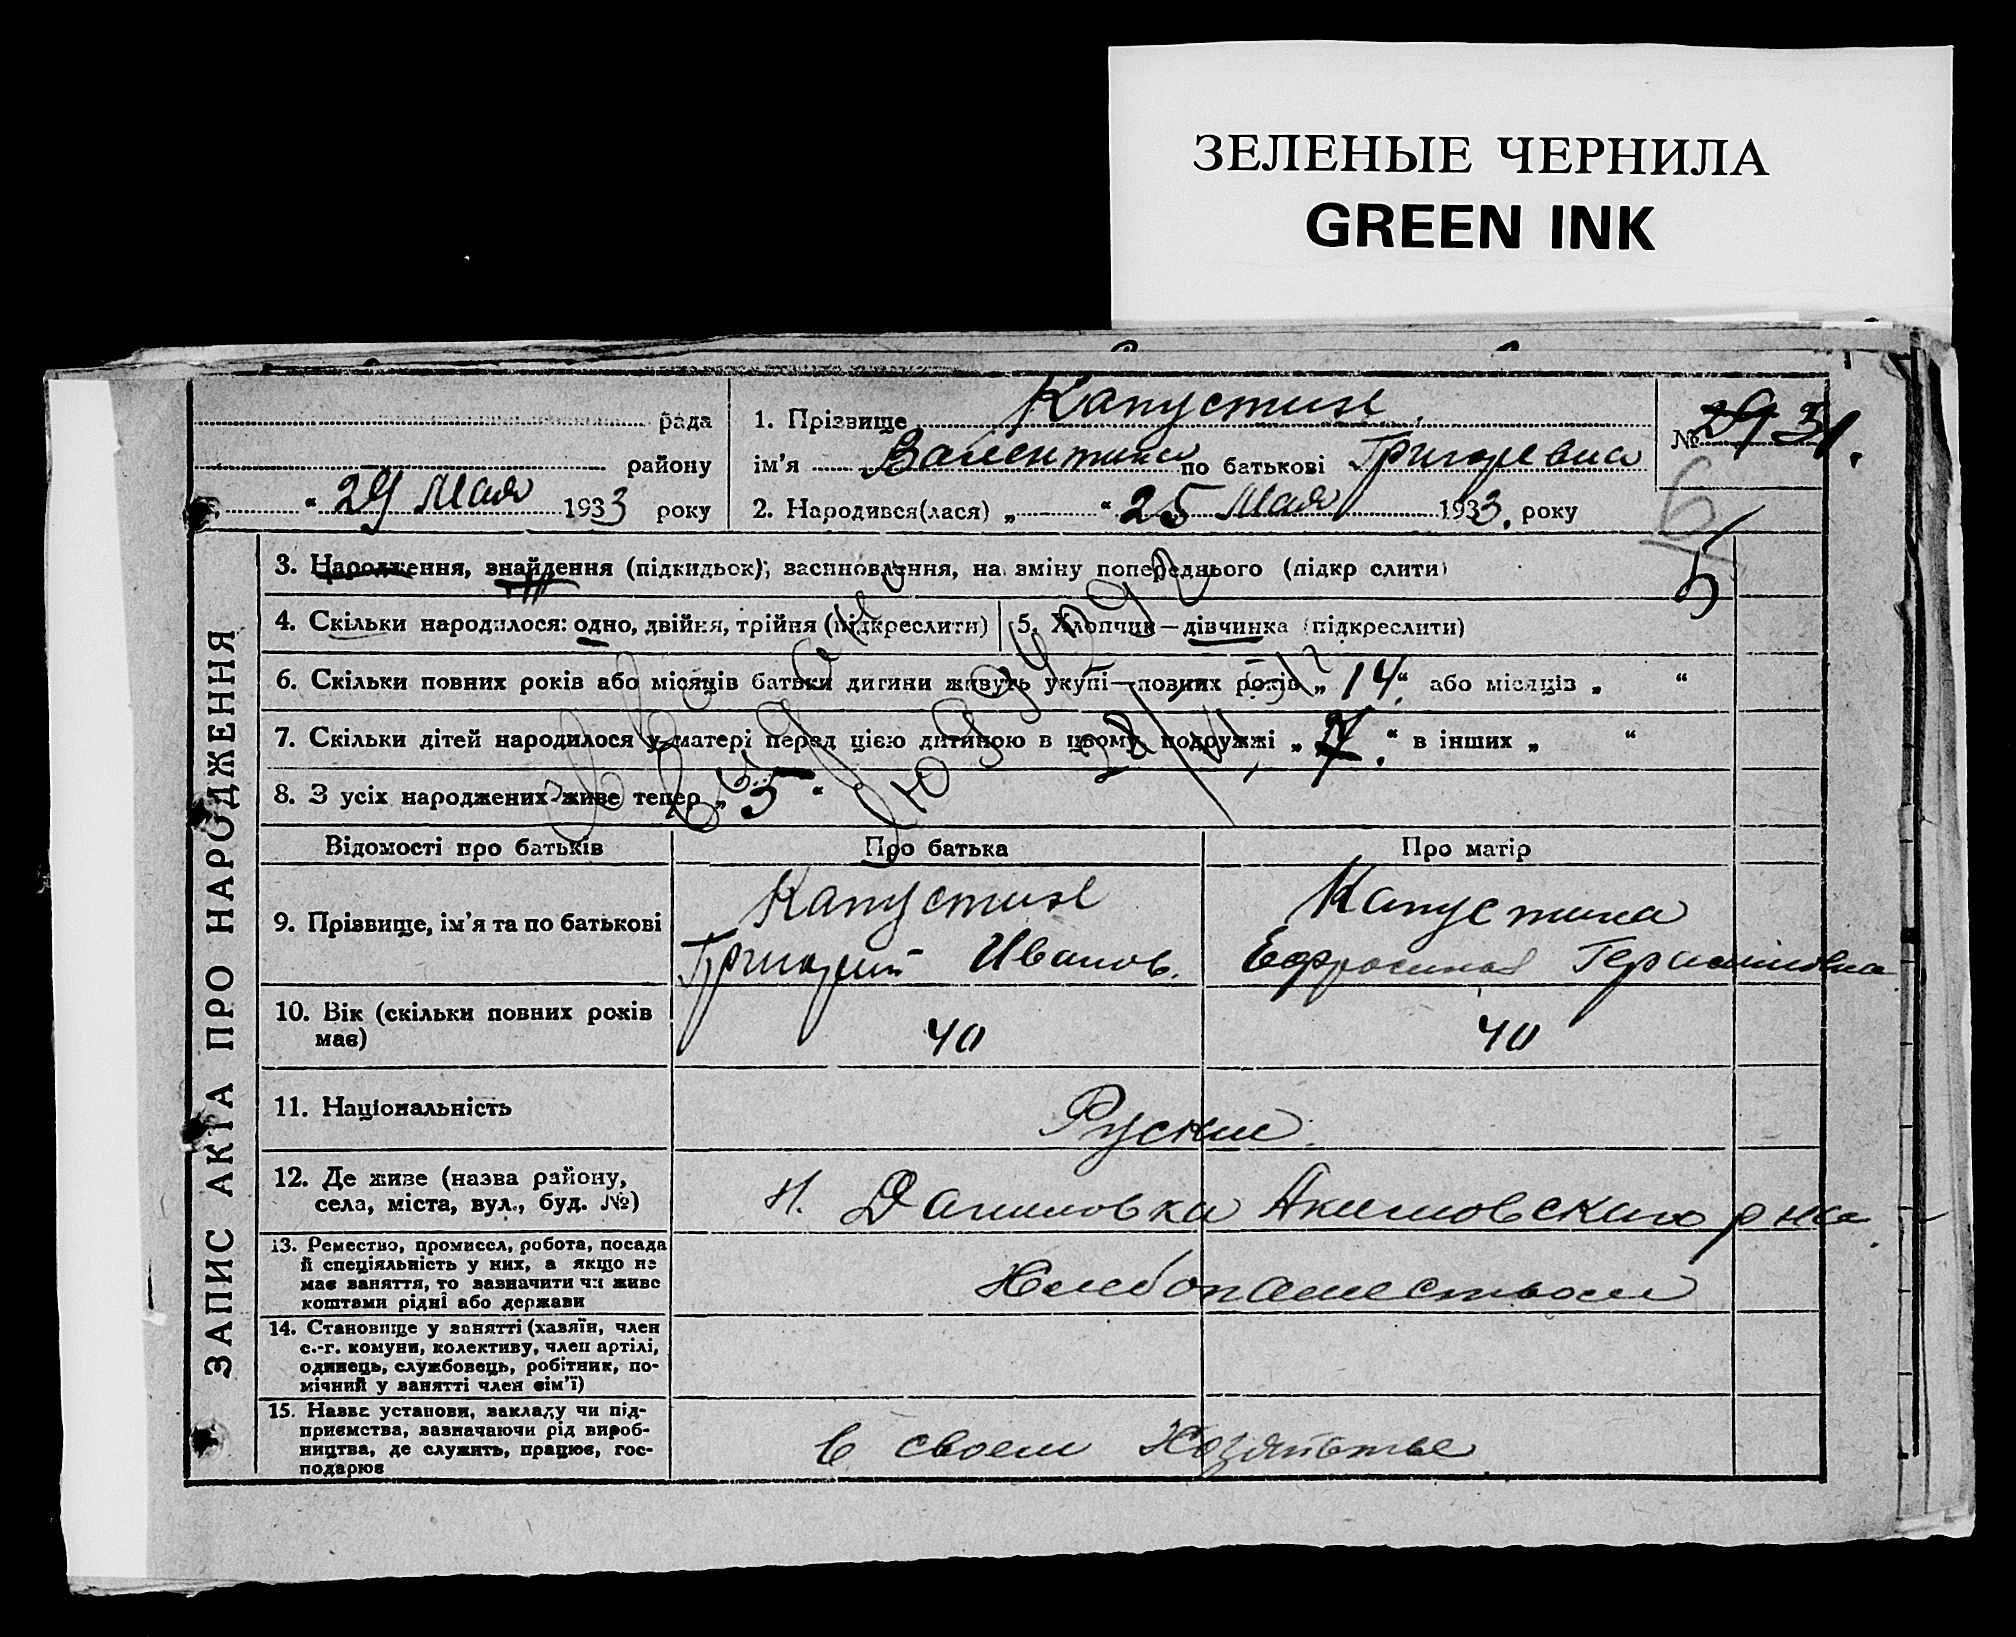 ЗЕЛЕНЫЕ ЧЕРНИЛА
GREEN INK
рада
району
" 29 Мая 1933 року
1. Прізвище Капустин
ім'я Валентина по батькові Григоревна
2. Народився(лася) „ " 25 Мая 1933. року
№ 29 31.
6
5
ЗАПИС АКТА ПРО НАРОДЖЕННЯ
3. Народження, знайдення (підкидьок), васиновлення, на зміну попереднього (підкр слити)
4. Скільки народилося: одно, двійня, трійня (підкреслити)
5. Хлопчик — дівчинка (підкреслити)
6. Скільки повних років або місяців батьки дитини живуть укупі — повних років „ 14 " або місяців „ "
7. Скільки дітей народилося у матері перед цією дитиною в цьому подружжі „ 7. " в інших „ "
8. З усіх народжених живе тепер „ 5 "
Відомості про батьків Про батька Про матір
9. Прізвище, ім'я та по батькові
Капустин
Григорий Иванов.
Капустина
Ефросиния
10. Вік (скільки повних років
має)
40 40
11. Національність
Руские
12. Де живе (назва району,
села, міста, вул., буд. №)
Н. Даниловка Акимовского р на
13. Ремество, промисел, робота, посада
й спеціяльність у них, а якщо не
має заняття, то зазначити чи живе
коштами рідні або держави
Хлебопашеством
14. Становище у занятті (хазяїн, член
с.-г. комуни, колективу, член артілі,
одинець, службовець, робітник, по-
мічний у занятті член сім'ї)
15. Назва установи, закладу чи під-
приємства, зазначаючи рід вироб-
ництва, де служить, працює, гос-
подарює
в своем Хозяйстве